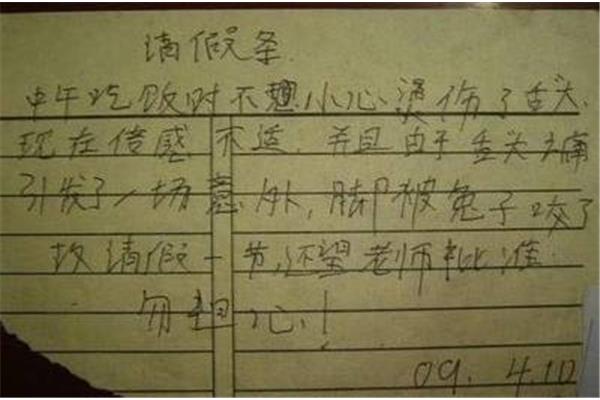 请假条
中午吃饭时不想小心烫伤了舌头.
现在倍感不适.并且由于舌头疼痛
引发了一场意外,脚被兔子咬了
故请假一节,还望老师批准.
勿担心!
09.4.10